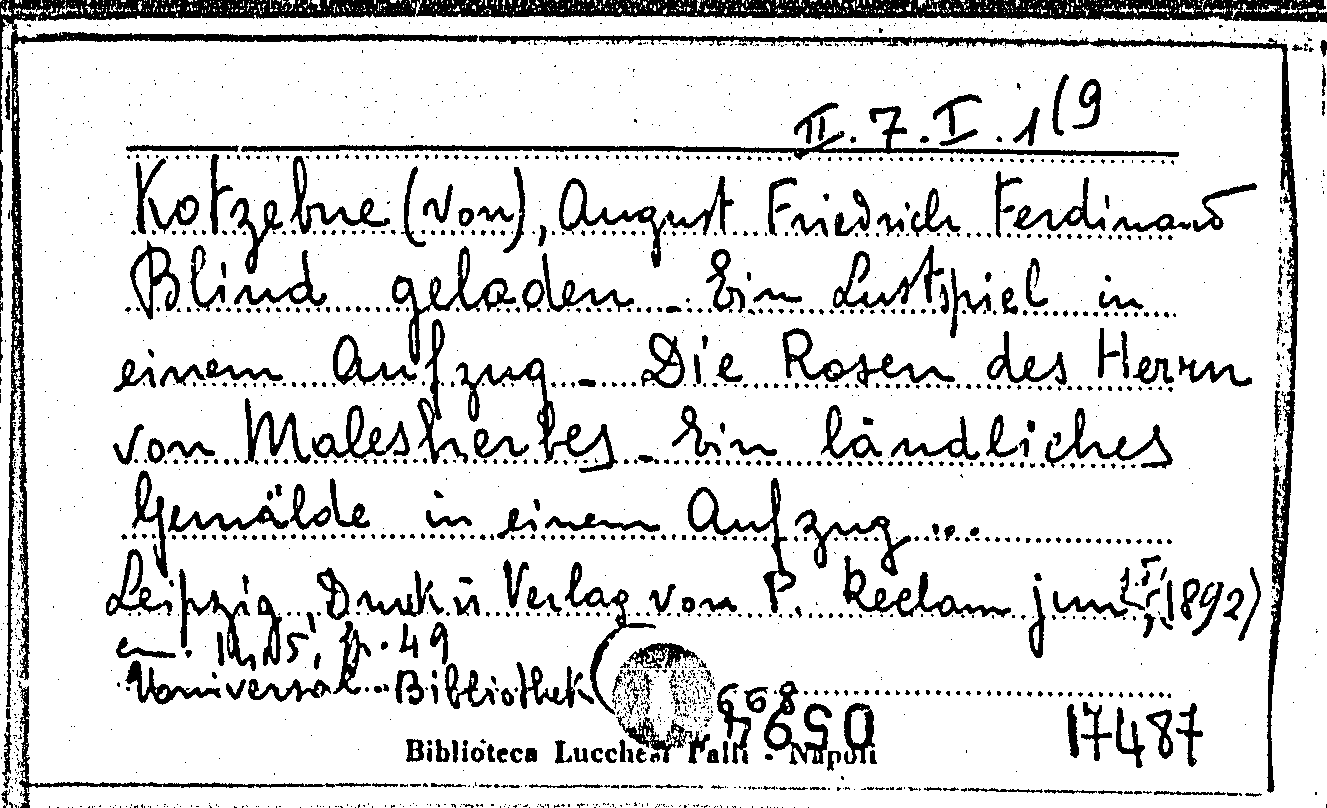 II.7.I.1(9
Kotzebue (von), August Friedrich Ferdinand
Blind geladen - Ein Lustspiel in
einem Aufzug - Die Rosen des Herrn
von Malesherbes - Ein ländliches
Gemälde in einem Aufzug ...
Leipzig, Druk ü Verlag von P. Reclam jun, 1892)
cm. 14,5, p. 49
Universal-Bibliothek (
668
05924
17487
Biblioteca Lucchesi Palli - Napoli